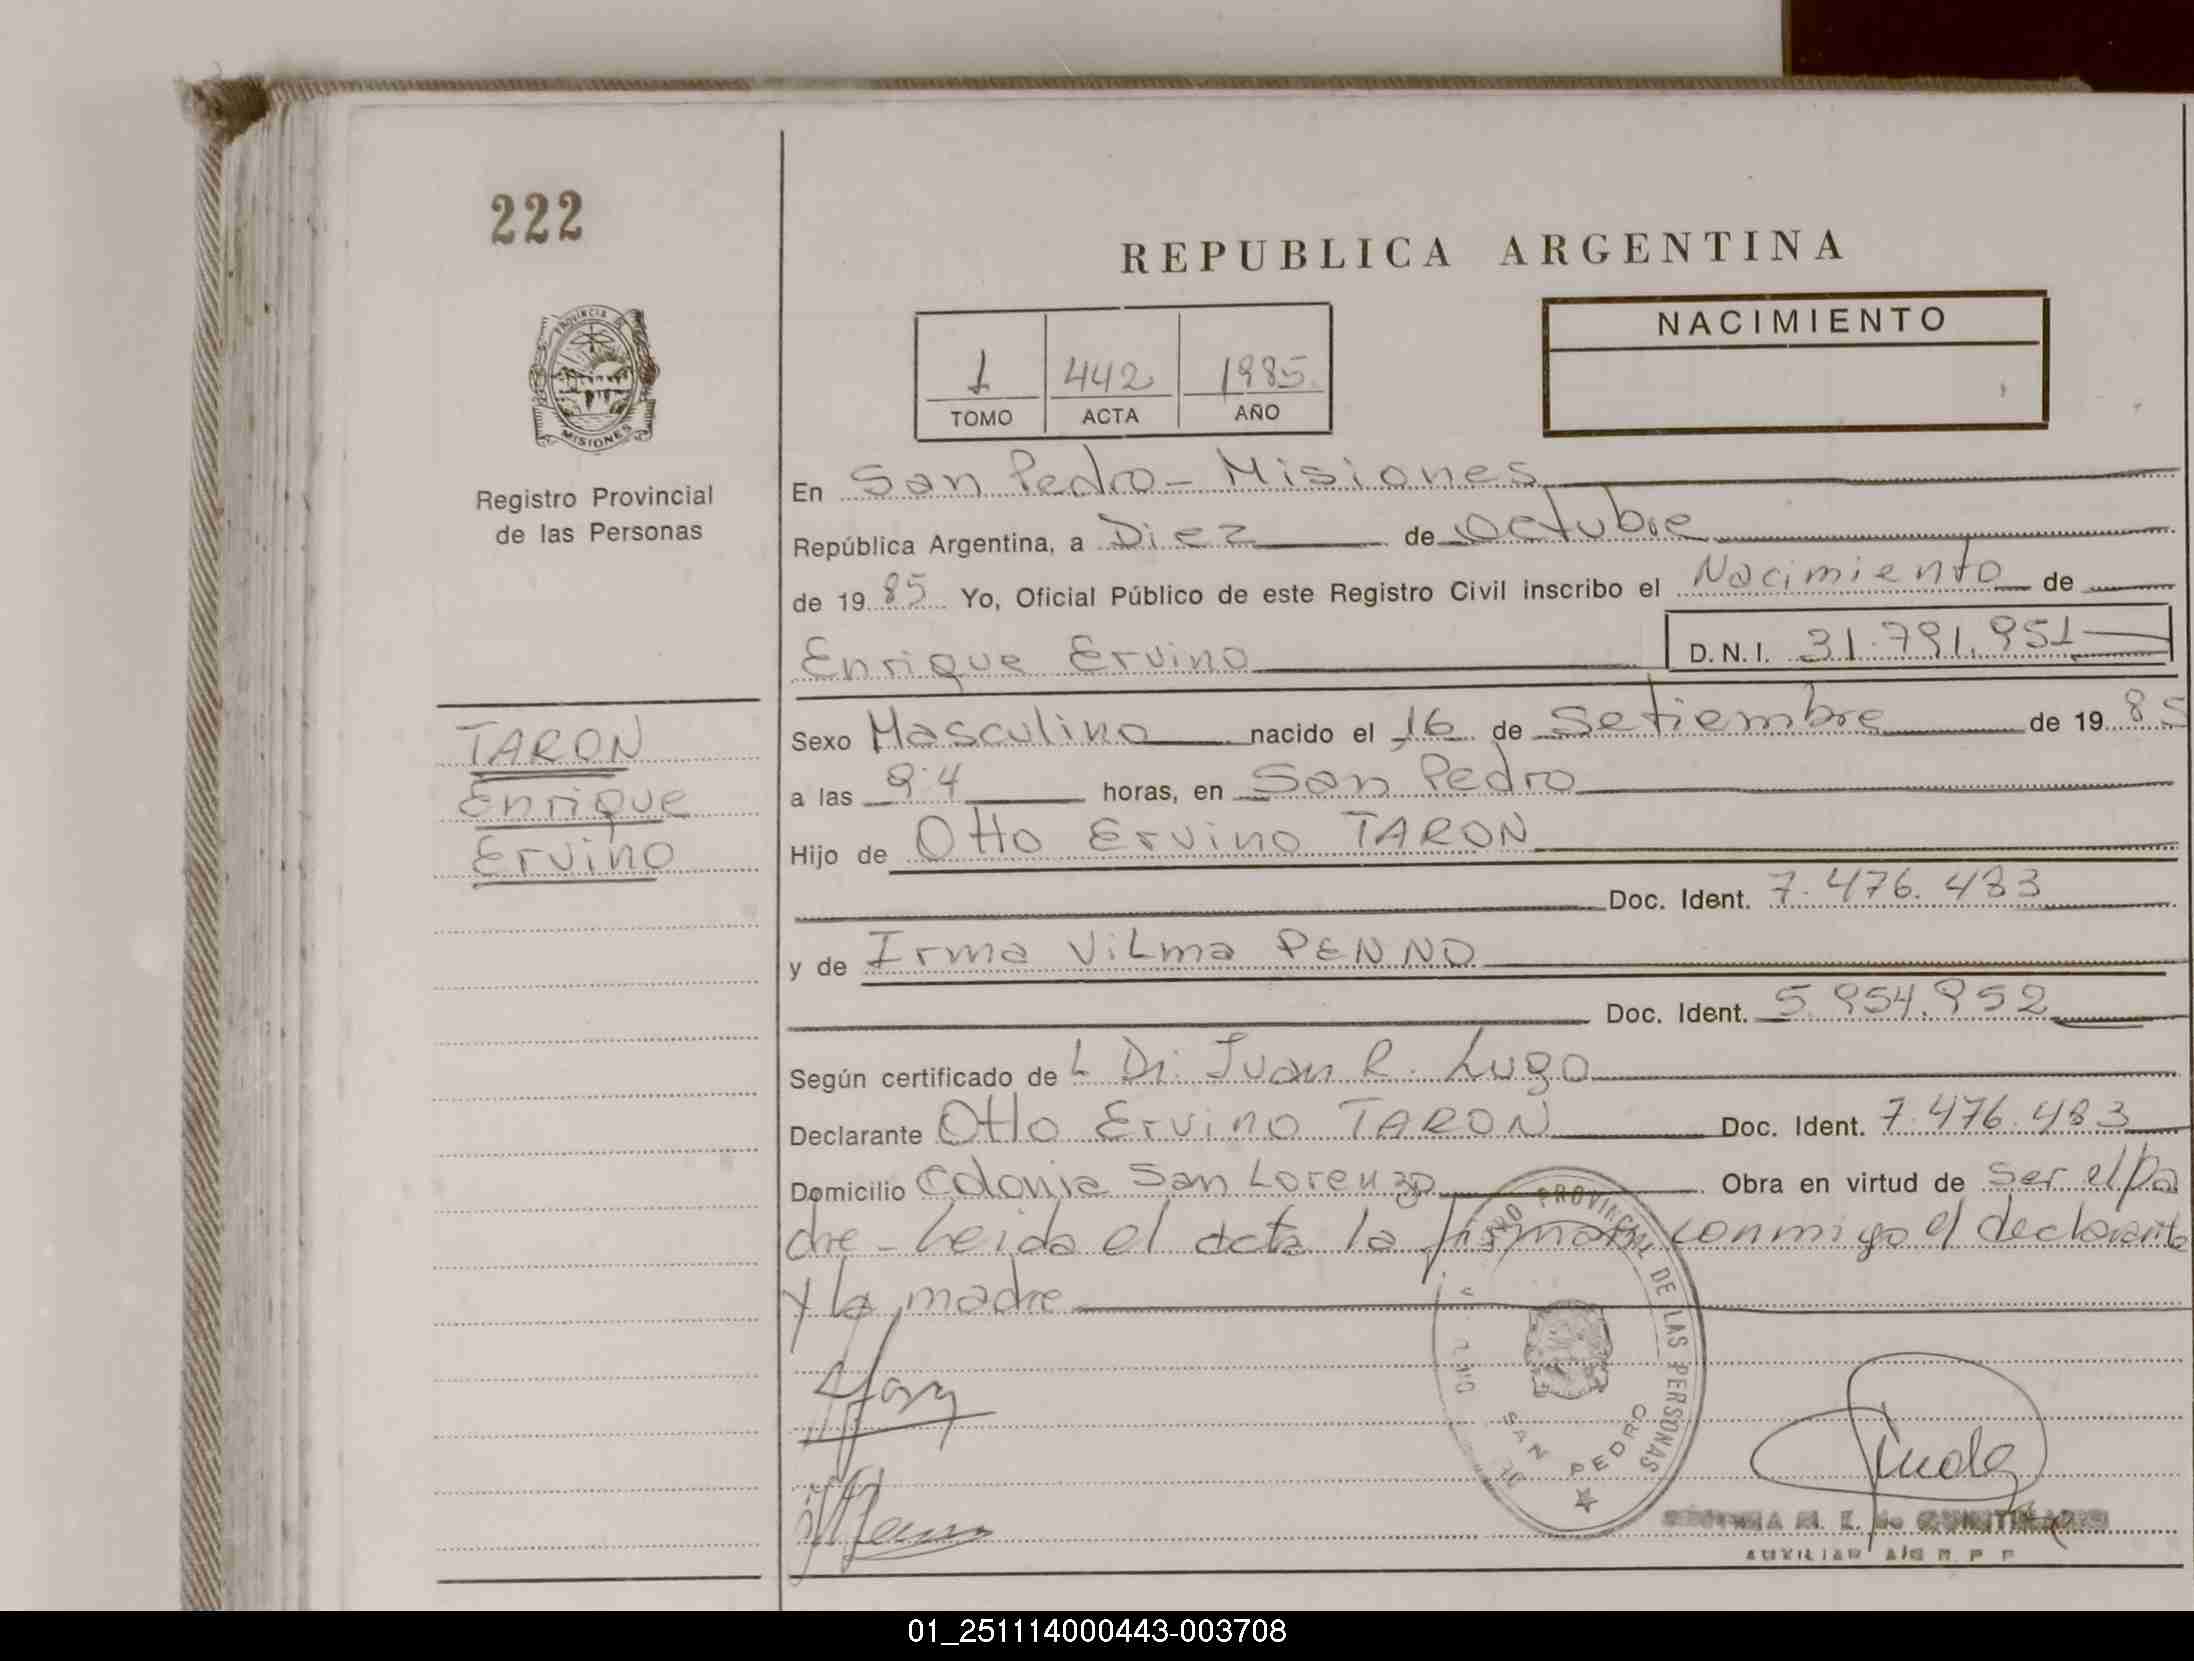 222
REPUBLICA ARGENTINA
PROVINCIA DE
MISIONES
Registro Provincial
de las Personas
1 442 1985
TOMO ACTA AÑO
NACIMIENTO
En San Pedro - Misiones
República Argentina, a Diez de Octubre
de 1985 Yo, Oficial Público de este Registro Civil inscribo el Nacimiento de
Enrique Ervino D. N. I. 31.791.951
TARON
Enrique
Ervino
Sexo Masculino nacido el 16 de Setiembre de 1985
a las 9:4 horas, en San Pedro
Hijo de Otto Ervino TARON
Doc. Ident. 7.476.483
y de Irma Vilma PENNO
Doc. Ident. 5.954.952
Según certificado de L Di. Juan R. Lugo
Declarante Otto Ervino TARON Doc. Ident. 7.476.483
Domicilio Colonia San Lorenzo Obra en virtud de ser el pa
dre - Leida el acta la firman conmigo el declarante
y la madre
PROVINCIAL DE LAS PERSONAS
SAN PEDRO
AUXILIAR
01_251114000443-003708